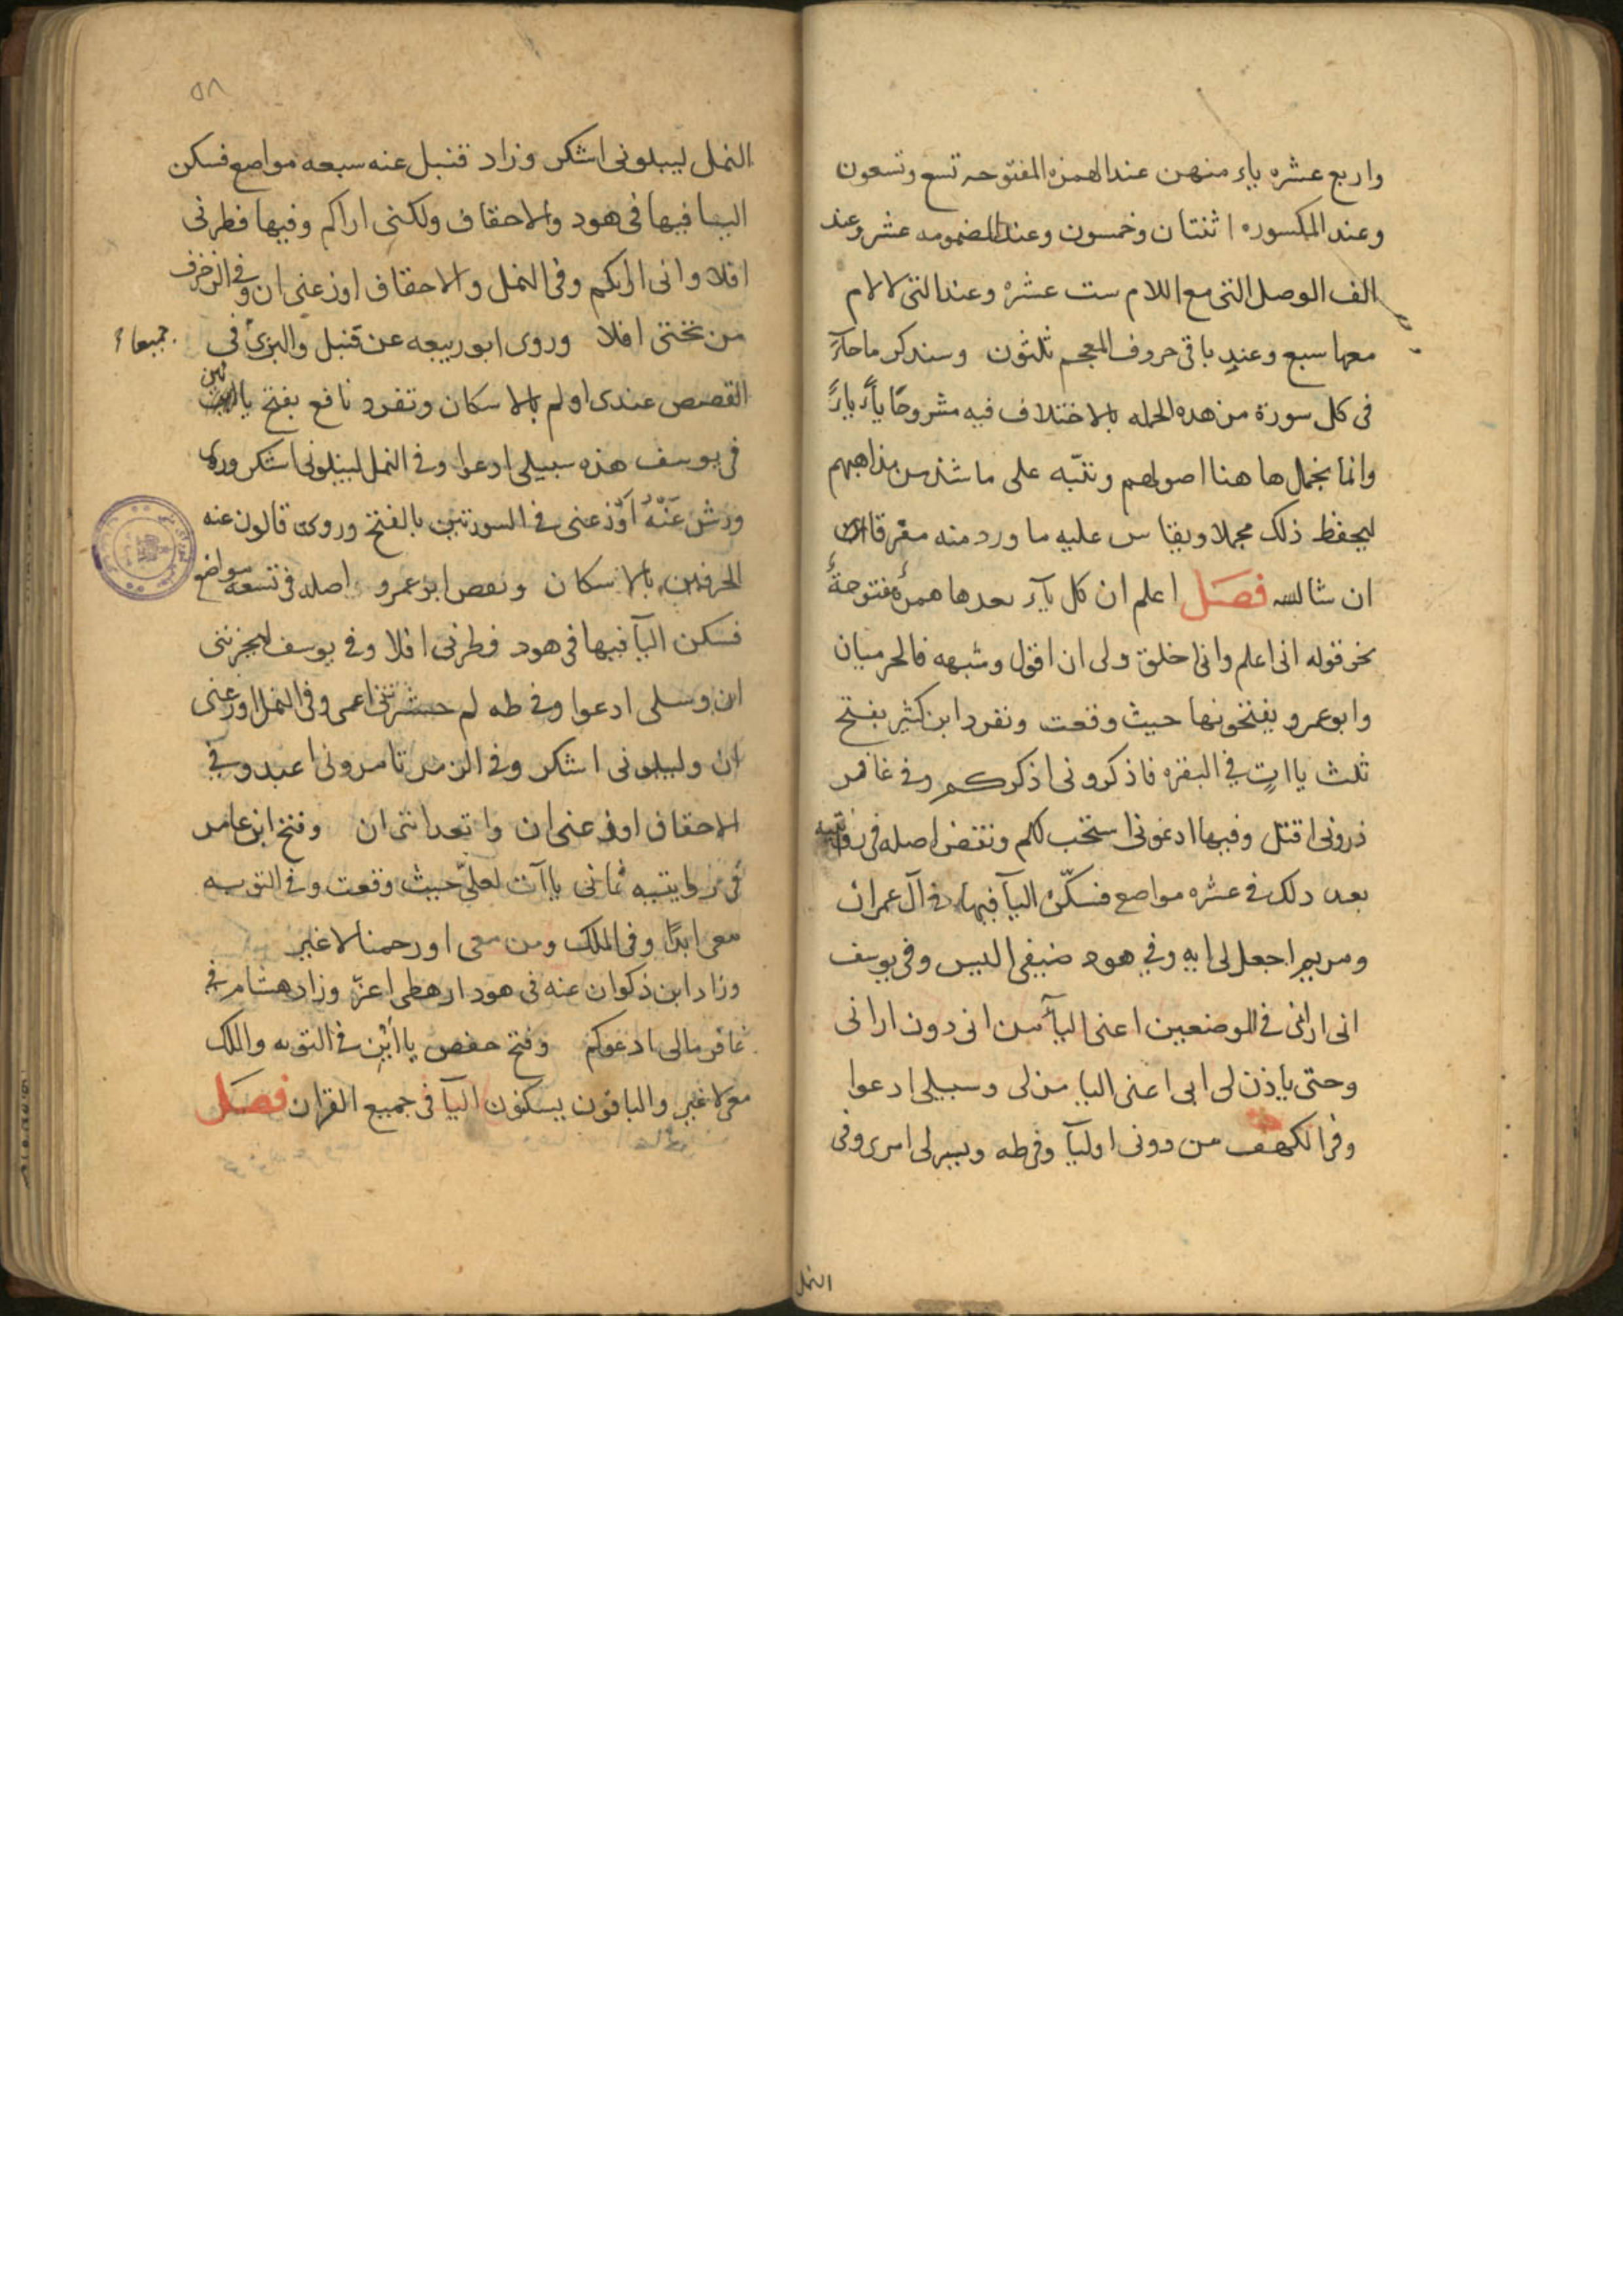 واربع عشره ياء منهن عند الهمزه المفتوحه تسع وتسعون
وعند المكسوره اثنتان وخمسون وعند المضمومه عشر وعند
الف الوصل التى مع اللام ست عشره وعند التى لا لام
معها سبع وعند باقى حروف المعجم ثلثون وسنذكر ما جاء
فى كل سورة من هده الجمله بالاختلاف فيه مشروحًا ياءً ياءً
وانما نجمل ها هنا اصولهم وننبّه على ما شذ من مذاهبهم
ليحفظ ذلك مجملا ويقاس عليه ما ورد منه مفرقا
ان شا الله فصل اعلم ان كل ياء بعدها همزة مفتوحة
نحو قوله انى اعلم وانى اخلق ولى ان اقول وشبهه فالحرميان
وابو عمرو يفتحونها حيث وقعت وتفرد ابن كثير بفتح
ثلث ياات في البقره فاذكرونى اذكركم وفى غافر
ذرونى اقتل وفيها ادعونى استجب لكم ونقض اصله فى روايتيه
بعد ذلك فى عشره مواضع فسكّن اليآ فيها فى آل عمران
ومريم اجعل لى ايه وفي هود ضيفى اليس وفى يوسف
انى ارانى فى الموضعين اعنى اليآ من انى دون ارانى
وحتى ياذن لى ابى اعنى اليا من لى وسبيلى ادعوا
وفى الكهف من دونى اوليآ وفى طه ويسر لى امرى وفى
النمل
٥٨
النمل ليبلونى اشكر وزاد قنبل عنه سبعه مواضع فسكن
اليا فيها فى هود والاحقاف ولكنى اراكم وفيها فطرنى
افلا وانى اراكم وفى النمل والاحقاف اوزعنى ان وفى الزخرف
من تحتى افلا وروى ابو ربيعه عن قنبل والبزى فى جميعا
القصص عندى اولم بالاسكان وتفرد نافع بفتح يائين
فى يوسف هذه سبيلى ادعوا وفى النمل ليبلونى اشكر وروى
ورش عنه اوزعنى فى السورتين بالفتح وروى قالون عنه
الحرفين بالاسكان ونقص ابو عمرو اصله فى تسعه مواضع
فسكن اليآ فيها فى هود فطرنى افلا وفى يوسف ليحزننى
ان وسبيلى ادعوا وفى طه لم حشرتنى اعمى وفى النمل اوزعنى
ان وليبلونى اشكر وفى الزمر تامرونى اعبد وفي
الاحقاف اوزعنى ان واتعداننى ان وفتح ابن عامر
فى روايتيه ثمانى ياآت لعلىّ حيث وقعت وفى التوبه
معى ابدًا وفى الملك ومن معى او رحمنا لا غير
وزاد ابن ذكوان عنه فى هود ارهطى اعزّ وزاد هشام في
غافر مالى ادعوكم وفتح حفص يائين فى التوبه والملك
معى لا غير والباقون يسكنون اليآ فى جميع القران فصل